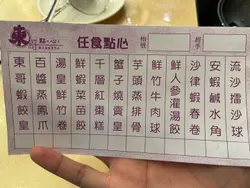 東
點心
任食點心
檯號
經手
流沙擂沙球
安蝦鹹水角
沙律蝦春卷
鮮人參灌湯餃
鮮竹牛肉球
芋頭蒸排骨
蟹子燒賣皇
千層紅棗糕
鮮蝦菜苗餃
湯皇鮮竹卷
百醬蒸鳳爪
東哥蝦餃皇